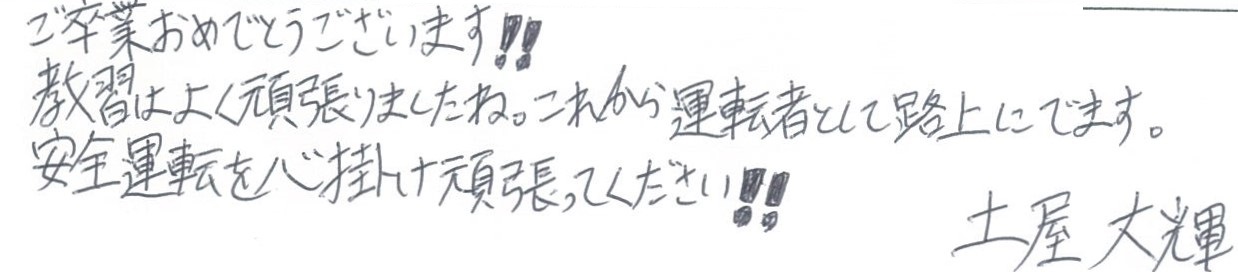 ご卒業おめでとうございます!!
教習はよく頑張りましたね。これから運転者として路上にでます。
安全運転を心掛け頑張ってください!!
土屋 大輝